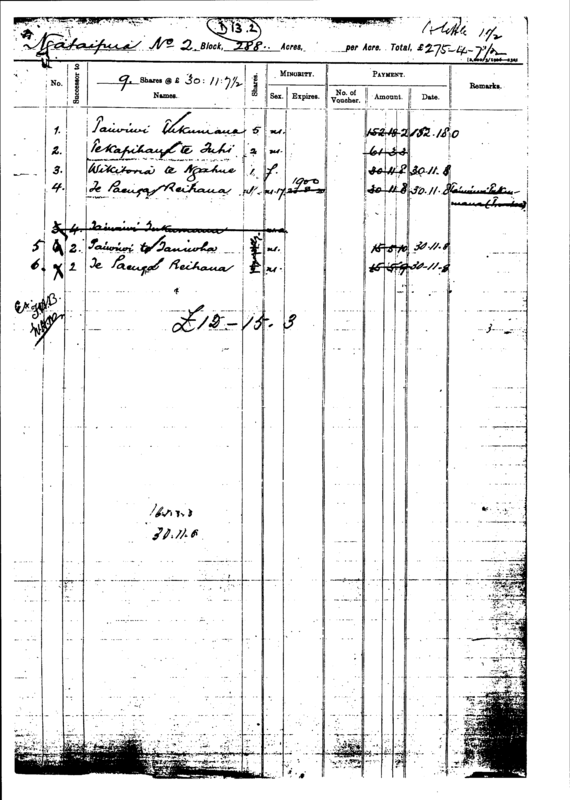 D 13.2
Ngataipua No 2 Block, 288 Acres, per Acre. Total, £275-4-7½
9 Shares @ £ 30:11:7½
No. Successor to Names. Shares. MINORITY. PAYMENT. Remarks.
Sex. Expires. No. of Voucher. Amount. Date.
1. Taiwiwi Tukumana 5 m. 152 18 2 152.18.0
2. Te Kapihana te Tuhi 2 m. 61 3 3
3. Wikitoria te Ngahue 1 f. 30 11 8 30.11.8
4. Te Paenga Reihana 1 m. 7 1900 30 11 8 30.11.8
3 4. Taiwiwi Tukumana
5 2. Taiwiwi te Taniwha m. 15 5 10 30.11.8
6. 2 Te Paenga Reihana m. 15 5 9 30-11-8
£12-15.3
30.11.6